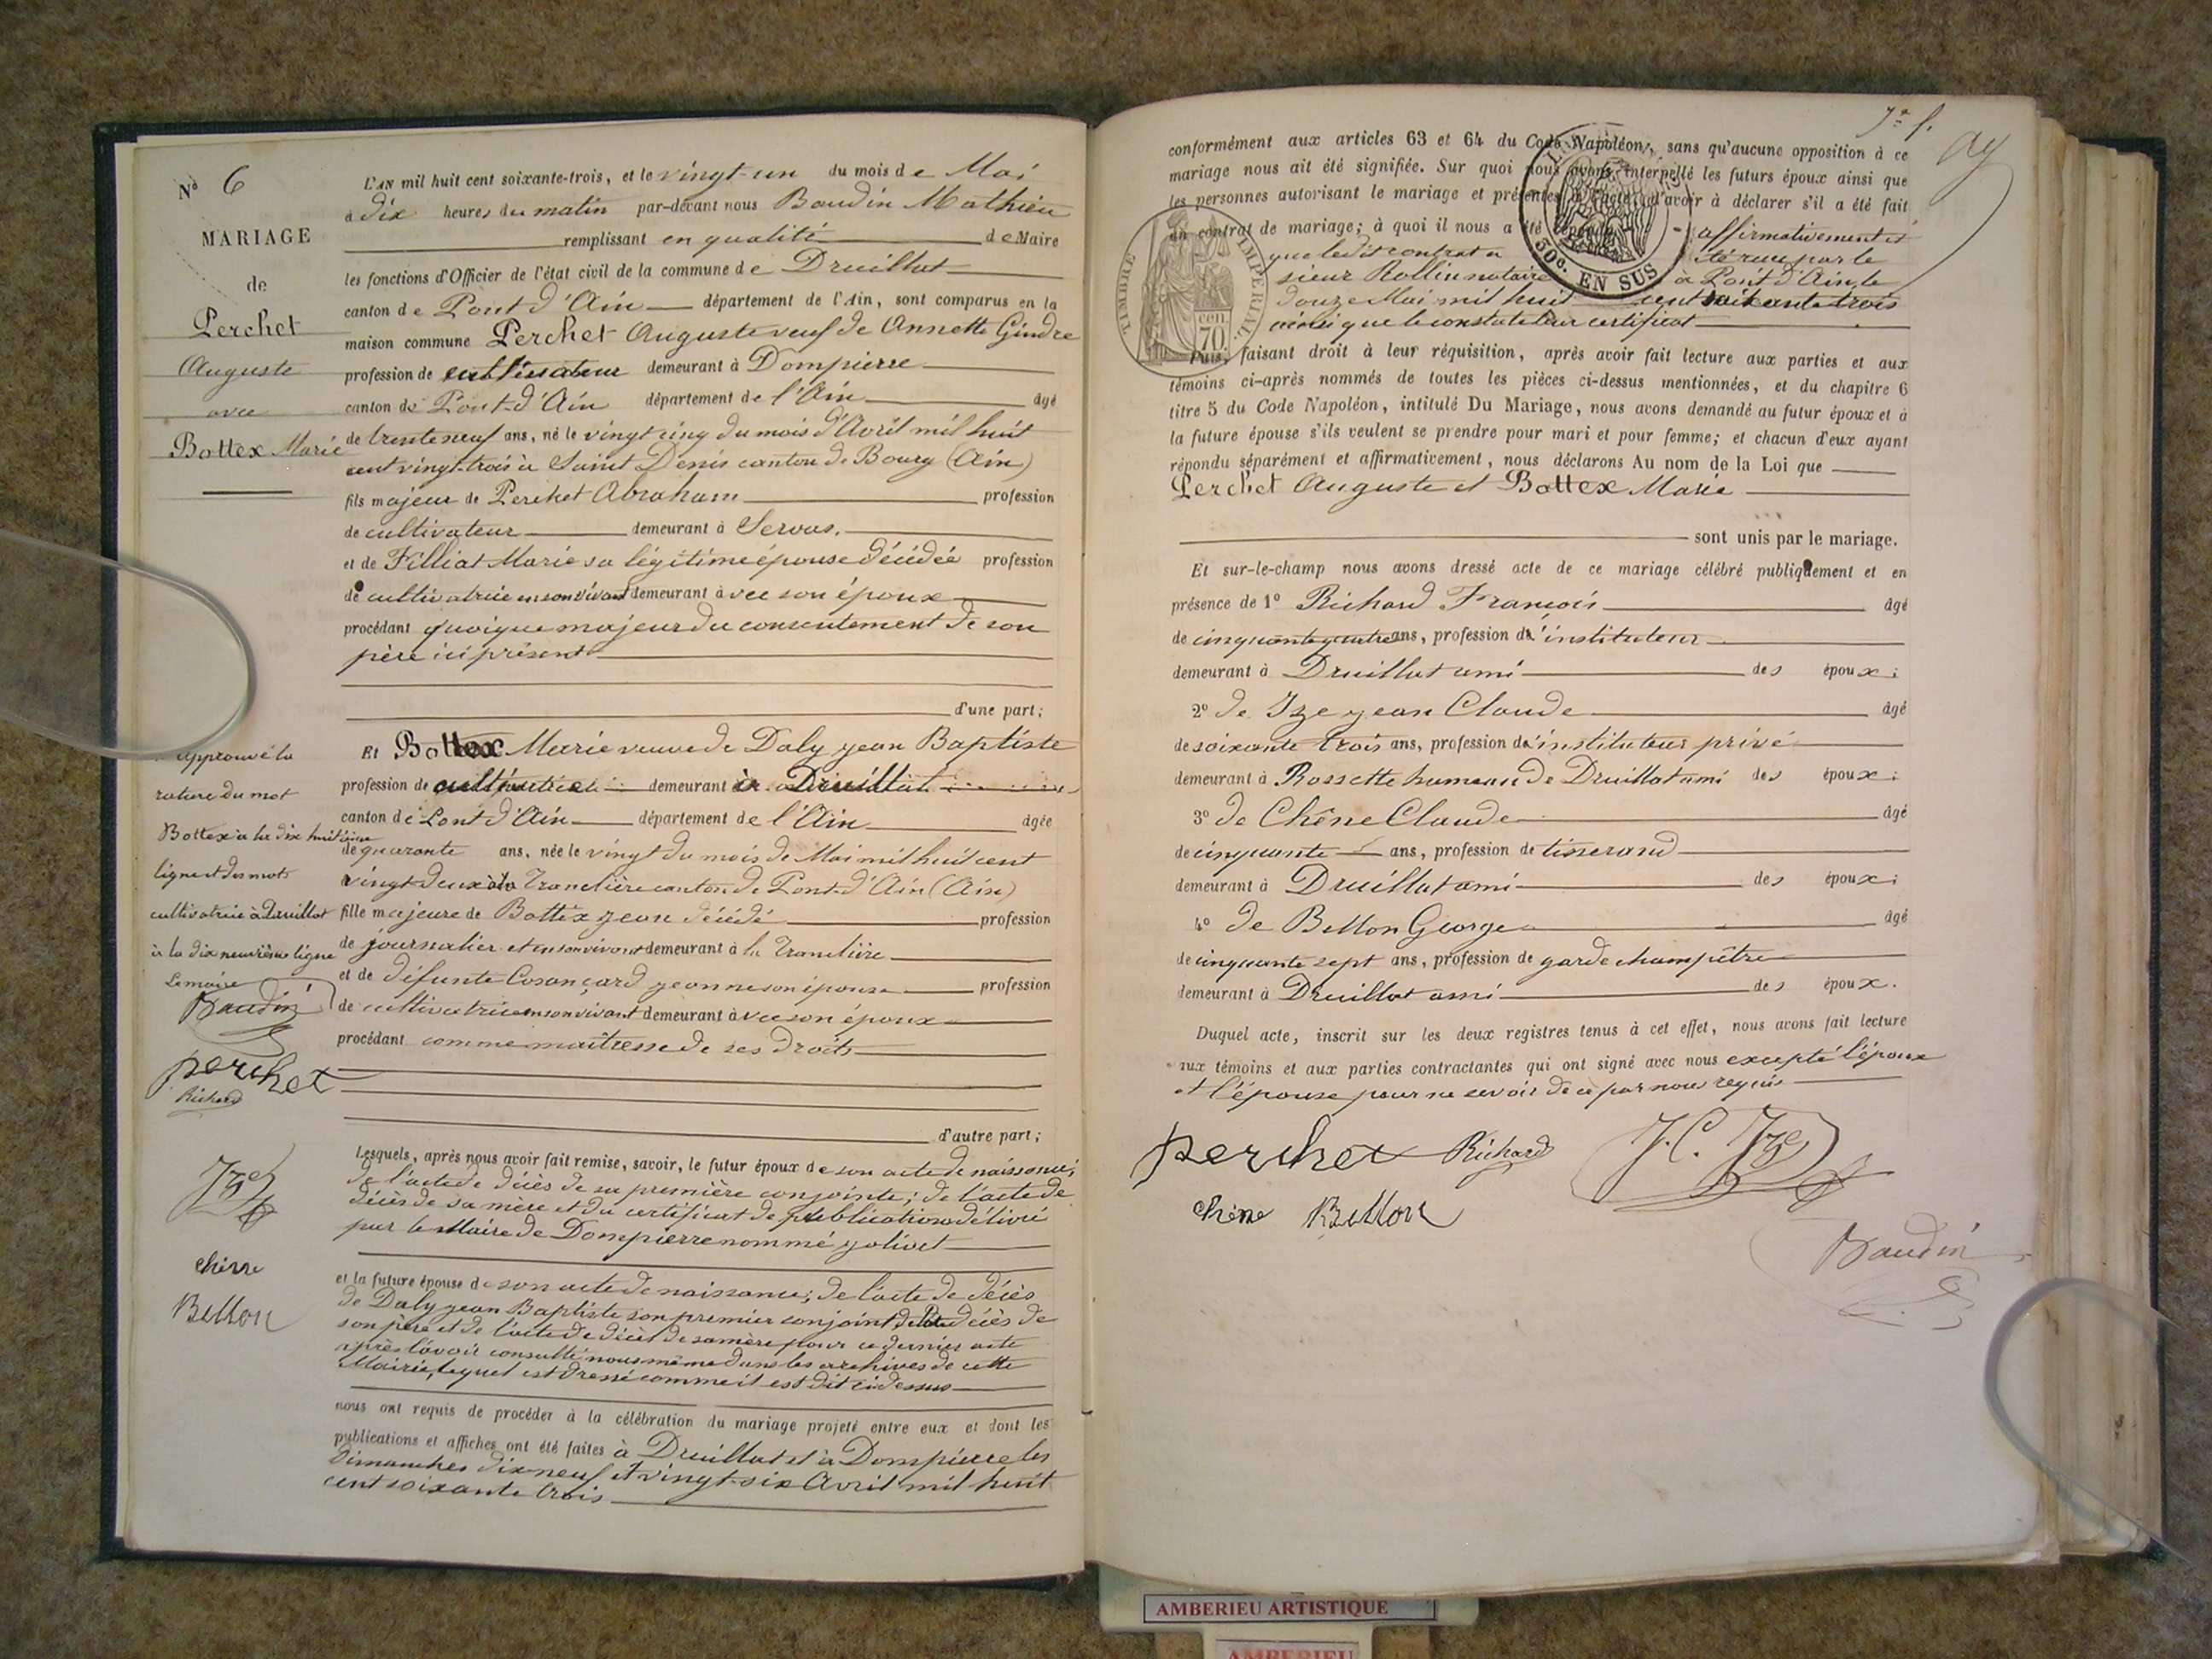 Nº 6
MARIAGE
de
Perchet
Auguste
avec
Bottex Marie
L'AN mil huit cent soixante-trois, et le vingt-un du mois de Mai
à dix heures du matin par-devant nous Baudin Mathieu
remplissant en qualité de Maire
les fonctions d'Officier de l'état civil de la commune de Druillat
canton de Pont d'Ain département de l'Ain, sont comparus en la
maison commune Perchet Auguste veuf de Annette Gindre
profession de cultivateur demeurant à Dompierre
canton de Pont-d'Ain département de l'Ain âgé
de trente neuf ans, né le vingt cinq du mois d'Avril mil huit
cent vingt-trois à Saint Denis canton de Bourg (Ain)
fils majeur de Perchet Abraham profession
de cultivateur demeurant à Servas.
et de Filliat Marie sa légitime épouse décédée profession
de cultivatrice en son vivant demeurant àvec son époux
procédant quoique majeur du consentement de son
père ici présent
d'une part;
Et Bottex Marie veuve de Daly jean Baptiste
profession de cultivatrice demeurant à Druillat
canton de Pont d'Ain département de l'Ain âgée
de quarante ans, née le vingt du mois de Mai mil huit cent
vingt-deux à la Tranclière canton de Pont-d'Ain (Ain)
fille majeure de Bottex jean décédé profession
de journalier et en son vivant demeurant à la Tranclière
et de défunte Cosançard jeanne son épouse profession
de cultivatrice en son vivant demeurant àvec son époux
procédant comme maîtresse de ses droits
d'autre part;
approuvé la
rature du mot
Bottex à la dix huitième
ligne et des mots
cultivatrice à Druillat
à la dix neuvième ligne
Le maire
Baudin
perchet
Richard
Chêne
Bellon
Lesquels, après nous avoir fait remise, savoir, le futur époux de son acte de naissance;
de l'acte de décès de sa première conjointe; de l'acte de
décès de sa mère et du certificat de publications délivré
par le Maire de Dompierre nommé jolivet
et la future épouse de son acte de naissance; de l'acte de décès
de Daly jean Baptiste son premier conjoint de l'acte de décès de
son père et de l'acte de décès de sa mère pour ce dernier acte
après l'avoir consulté nous même dans les archives de cette
Mairie, lequel est dressé comme il est dit ci dessus
nous ont requis de procéder à la célébration du mariage projeté entre eux et dont les
publications et affiches ont été faites à Druillat et à Dompierre les
dimanches dix-neuf et vingt-six Avril mil huit
cent soixante trois
7e f.
conformément aux articles 63 et 64 du Code Napoléon, sans qu'aucune opposition à ce
mariage nous ait été signifiée. Sur quoi nous avons interpellé les futurs époux ainsi que
les personnes autorisant le mariage et présentes à l'acte, d'avoir à déclarer s'il a été fait
un contrat de mariage; à quoi il nous a été répondu affirmativement et
que ledit contrat a été reçu par le
sieur Rollin notaire à Pont d'Ain, le
douze Mai mil huit cent soixante trois
ainsi que le constate leur certificat
TIMBRE IMPÉRIAL
cen
70.
50c. EN SUS
Puis, faisant droit à leur réquisition, après avoir fait lecture aux parties et aux
témoins ci-après nommés de toutes les pièces ci-dessus mentionnées, et du chapitre 6
titre 5 du Code Napoléon, intitulé Du Mariage, nous avons demandé au futur époux et à
la future épouse s'ils veulent se prendre pour mari et pour femme; et chacun d'eux ayant
répondu séparément et affirmativement, nous déclarons Au nom de la Loi que
Perchet Auguste et Bottex Marie
sont unis par le mariage.
Et sur-le-champ nous avons dressé acte de ce mariage célébré publiquement et en
présence de 1º Richard François âgé
de cinquante quatre ans, profession d'instituteur
demeurant à Druillat ami des époux;
2º de Ize jean Claude âgé
de soixante trois ans, profession d'instituteur privé
demeurant à Rossette hameau de Druillat ami des époux;
3º de Chêne Claude âgé
de cinquante ans, profession de tisserand
demeurant à Druillat ami des époux;
4º de Bellon George âgé
de cinquante sept ans, profession de garde champêtre
demeurant à Druillat ami des époux.
Duquel acte, inscrit sur les deux registres tenus à cet effet, nous avons fait lecture
aux témoins et aux parties contractantes qui ont signé avec nous excepté l'époux
et l'épouse pour ne savoir de ce par nous requis
perchet Richard J. C. Ize
Chêne Bellon
Baudin
AMBERIEU ARTISTIQUE
AMBERIEU